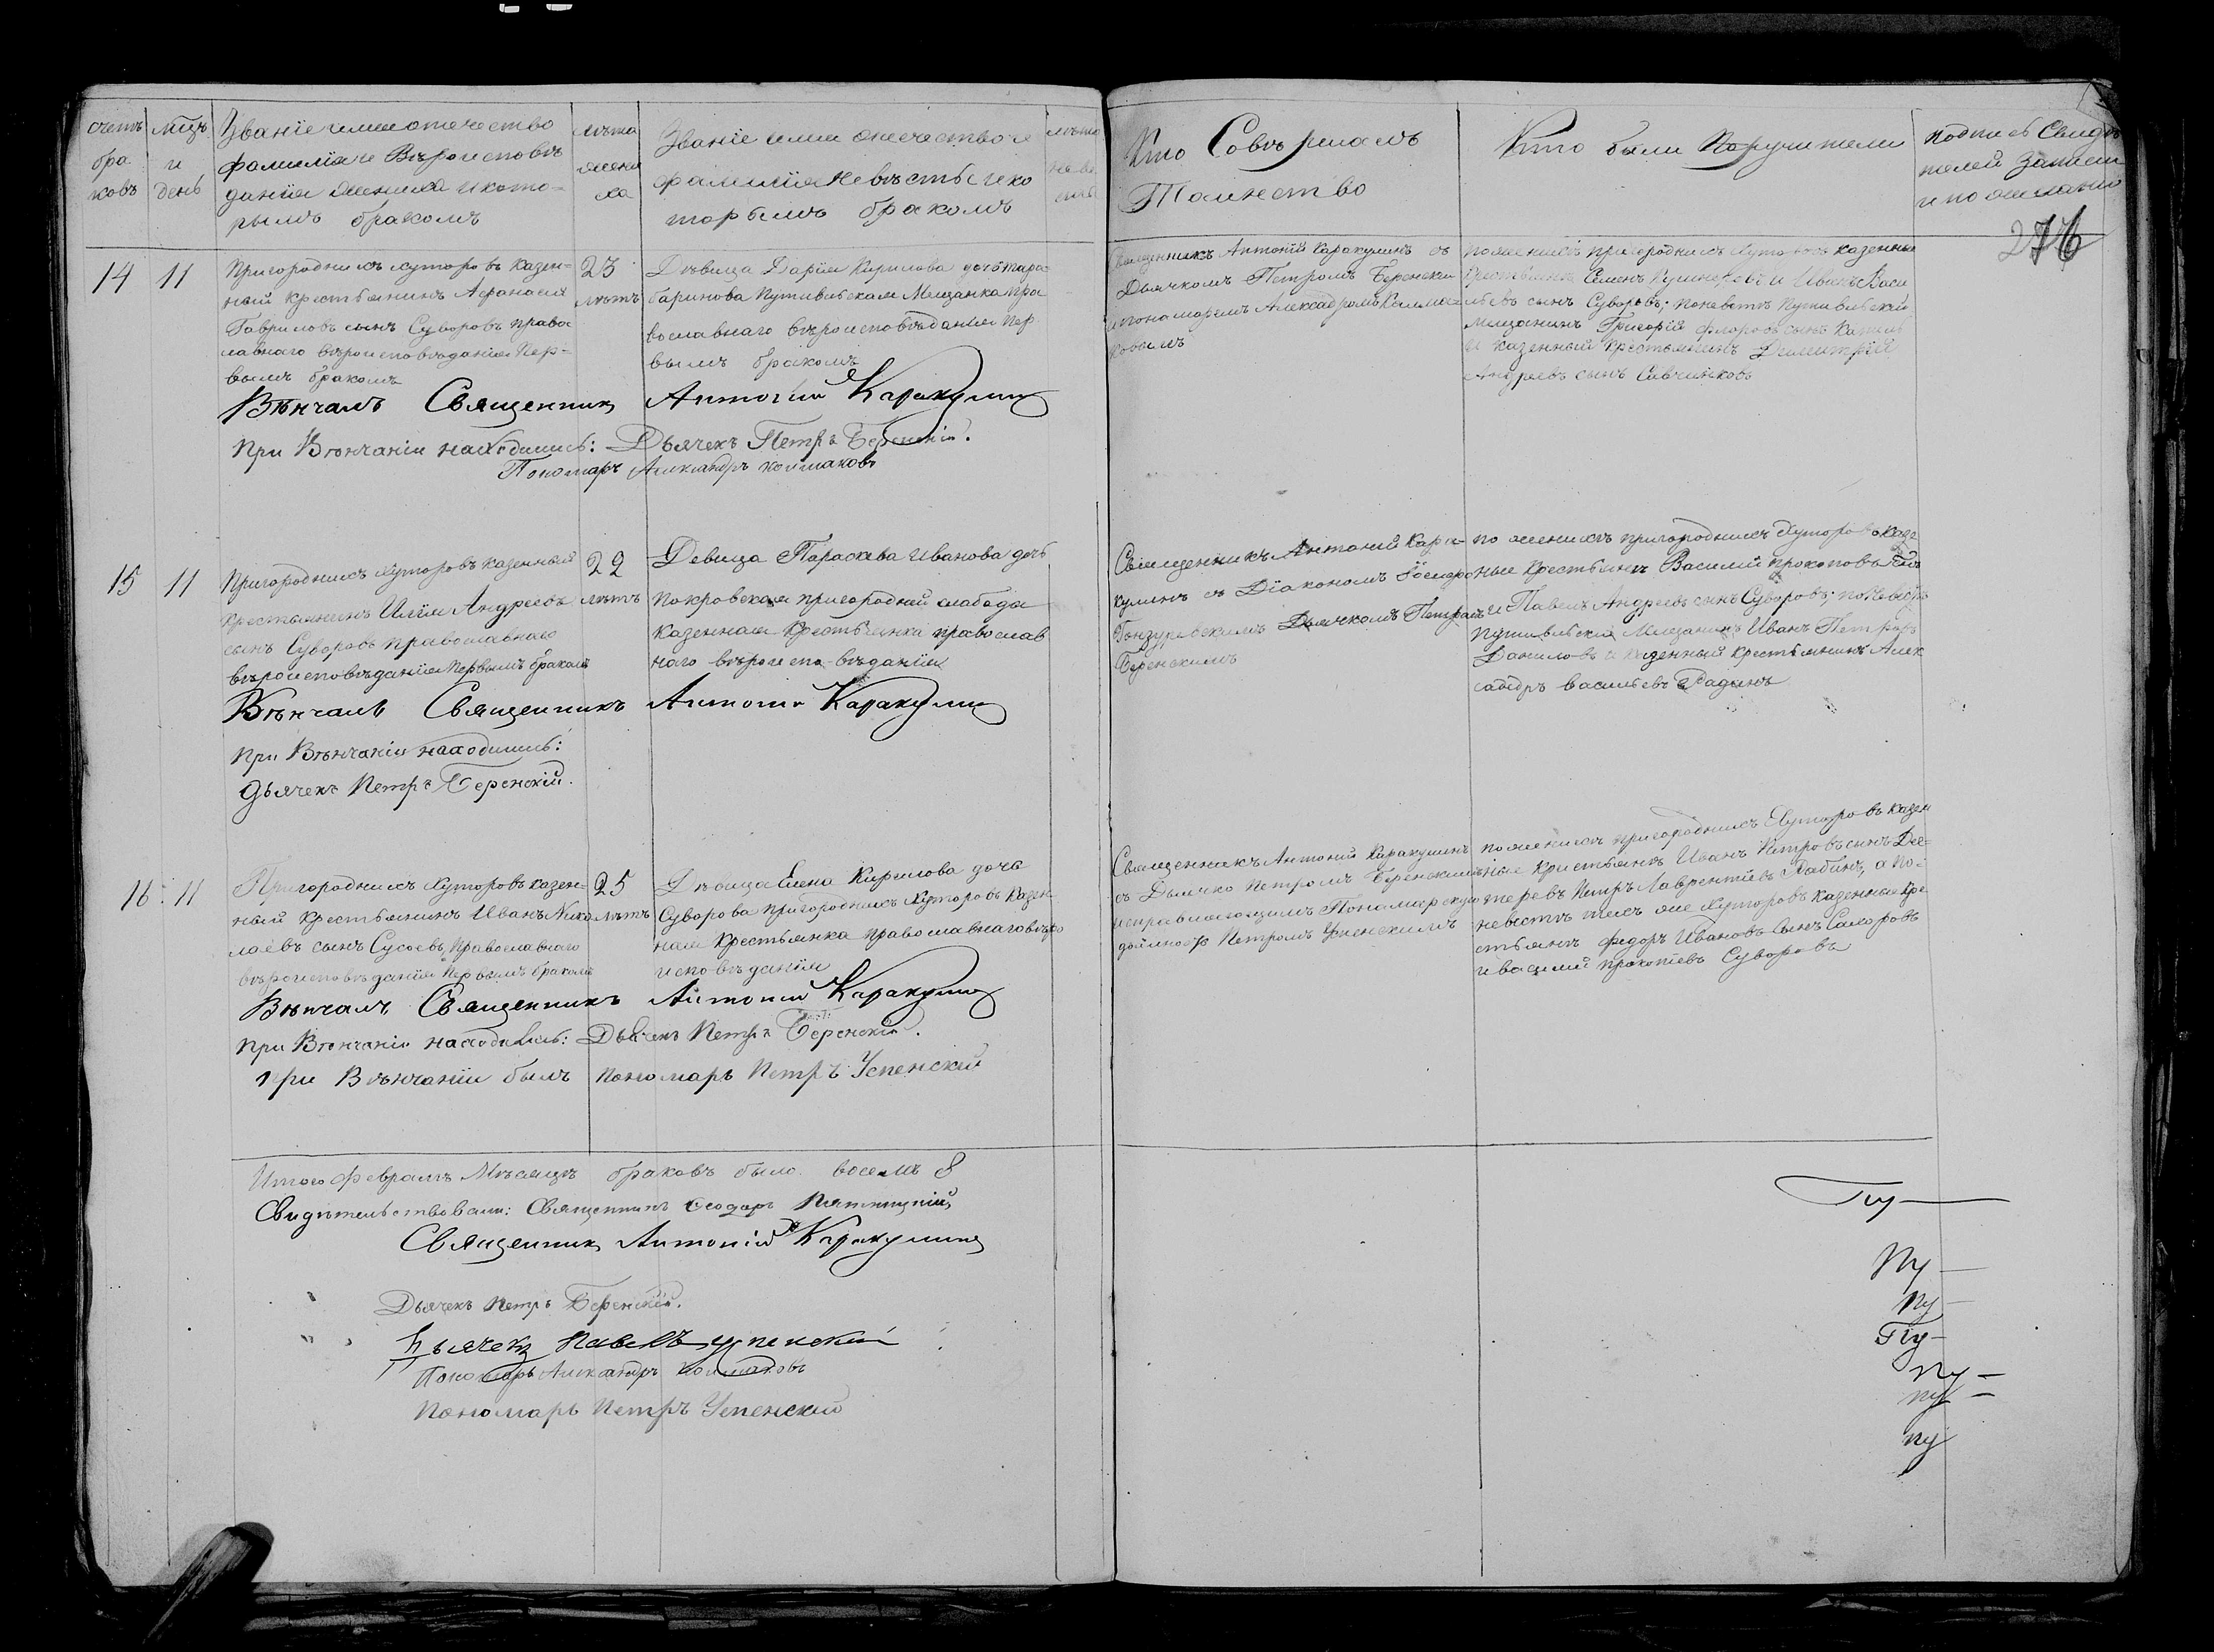 счетъ бра ковъ
мцъ и день
Званіе имя отечество
фамилія и Вѣроисповѣ
данія жениха и кото-
рымъ бракомъ
лѣта жени ха
Званіе имя отечество и
фамилія невѣсты и ко
торымъ бракомъ
лѣта невѣ
Кто Совершалъ
Таинство
Кто были Поручители
подпись Свидѣ
телей записи
и по желанію
276
14 11
Пригороднихъ хуторовъ казен-
ный крестьянинъ Афанасій
Гавриловъ сынъ Суворовъ право
славнаго вѣроисповѣданія пер-
вымъ бракомъ
23
лѣтъ
Дѣвица Дарія Кирилова дочь Тара
баринова Путивльская Мещанка пра
вославнаго вѣроисповѣданія Пер
вымъ бракомъ
Священникъ Антоній Каракулинъ съ
Дьячкомъ Петромъ Беренски
и пономаремъ Александромъ Колма
ковымъ
по женихѣ пригороднихъ хуторовъ казенны
Семенъ и Иванъ Васи
льевъ сынъ Суворовъ; по невѣстѣ Путивльскій
мещанинъ Григорій Флоровъ сынъ
и казенный крестьянинъ Димитрій
Андреевъ сынъ Савченковъ
Вѣнчалъ Священникъ Антоній Каракулинъ
При Вѣнчаніи находились: Дьячекъ Петръ Беренскій.
Пономарь Александръ Колмаковъ
15 11
Пригороднихъ хуторовъ казенный
крестьянинъ Илія Андреевъ
сынъ Суворовъ православнаго
вѣроисповѣданія первымъ бракомъ
22
лѣтъ
Девица Параскева Иванова дочь
Покровская пригородней слабоды
казенная крестьянка православ
наго вѣроиспо-вѣданія
Священникъ Антоній Кара-
кулинъ съ Діакономъ
Гонзуревскимъ Дьячкомъ Петромъ
Беренскимъ
по женихѣ пригороднихъ хуторовъ казе
ные крестьяне Василій Прокоповъ
и Павелъ Андреевъ сынъ Суворовъ; по невѣстѣ
Путивльскій Мещанинъ Иванъ Петровъ
Даниловъ и казенный крестьянинъ Алек
сандръ Васильевъ Радинъ
Вѣнчалъ Священникъ Антоній Каракулинъ
при Вѣнчаніи находились:
Дьячекъ Петръ Беренскій.
16 11
Пригороднихъ хуторовъ казен-
ный крестьянинъ Иванъ Нико
лаевъ сынъ Сусоевъ, Православнаго
вѣроисповѣданія первымъ бракомъ
25
лѣтъ
Дѣвица Елена Кирилова дочь
Суворова пригороднихъ хуторовъ казен
ная крестьянка православнаго вѣро
исповѣданія
Священникъ Антоній Каракулинъ
съ Дьячко Петромъ Беренскимъ
исправляющимъ Пономарскую
должность Петромъ Успенскимъ
по женихѣ пригороднихъ хуторовъ казен
ные крестьяне Иванъ Петровъ сынъ Дег-
теревъ Петръ Лаврентіевъ Рабинъ, а по-
невѣстѣ тѣхъ же хуторовъ казенные кре
стьяне Федоръ Ивановъ сынъ
и Василій Прокопіевъ Суворовъ
Вѣнчалъ Священникъ Антоній Каракулинъ
при Вѣнчаніи находились: Дьячекъ Петръ Беренскій.
при Вѣнчаніи былъ пономарь Петръ Успенскій
Итого Февралѣ Мѣсяцѣ браковъ было восемь 8
Свидѣтельствовали: Священникъ Ѳеодоръ Пятницкій
Священникъ Антоній Каракулинъ
Дьячекъ Петръ Беренскій.
Дьячекъ Павелъ Успенскій
Пономарь Александръ Колмаковъ
Пономарь Петръ Успенскій
Пу
Пу
Пу
Пу
Пу
Пу
Пу